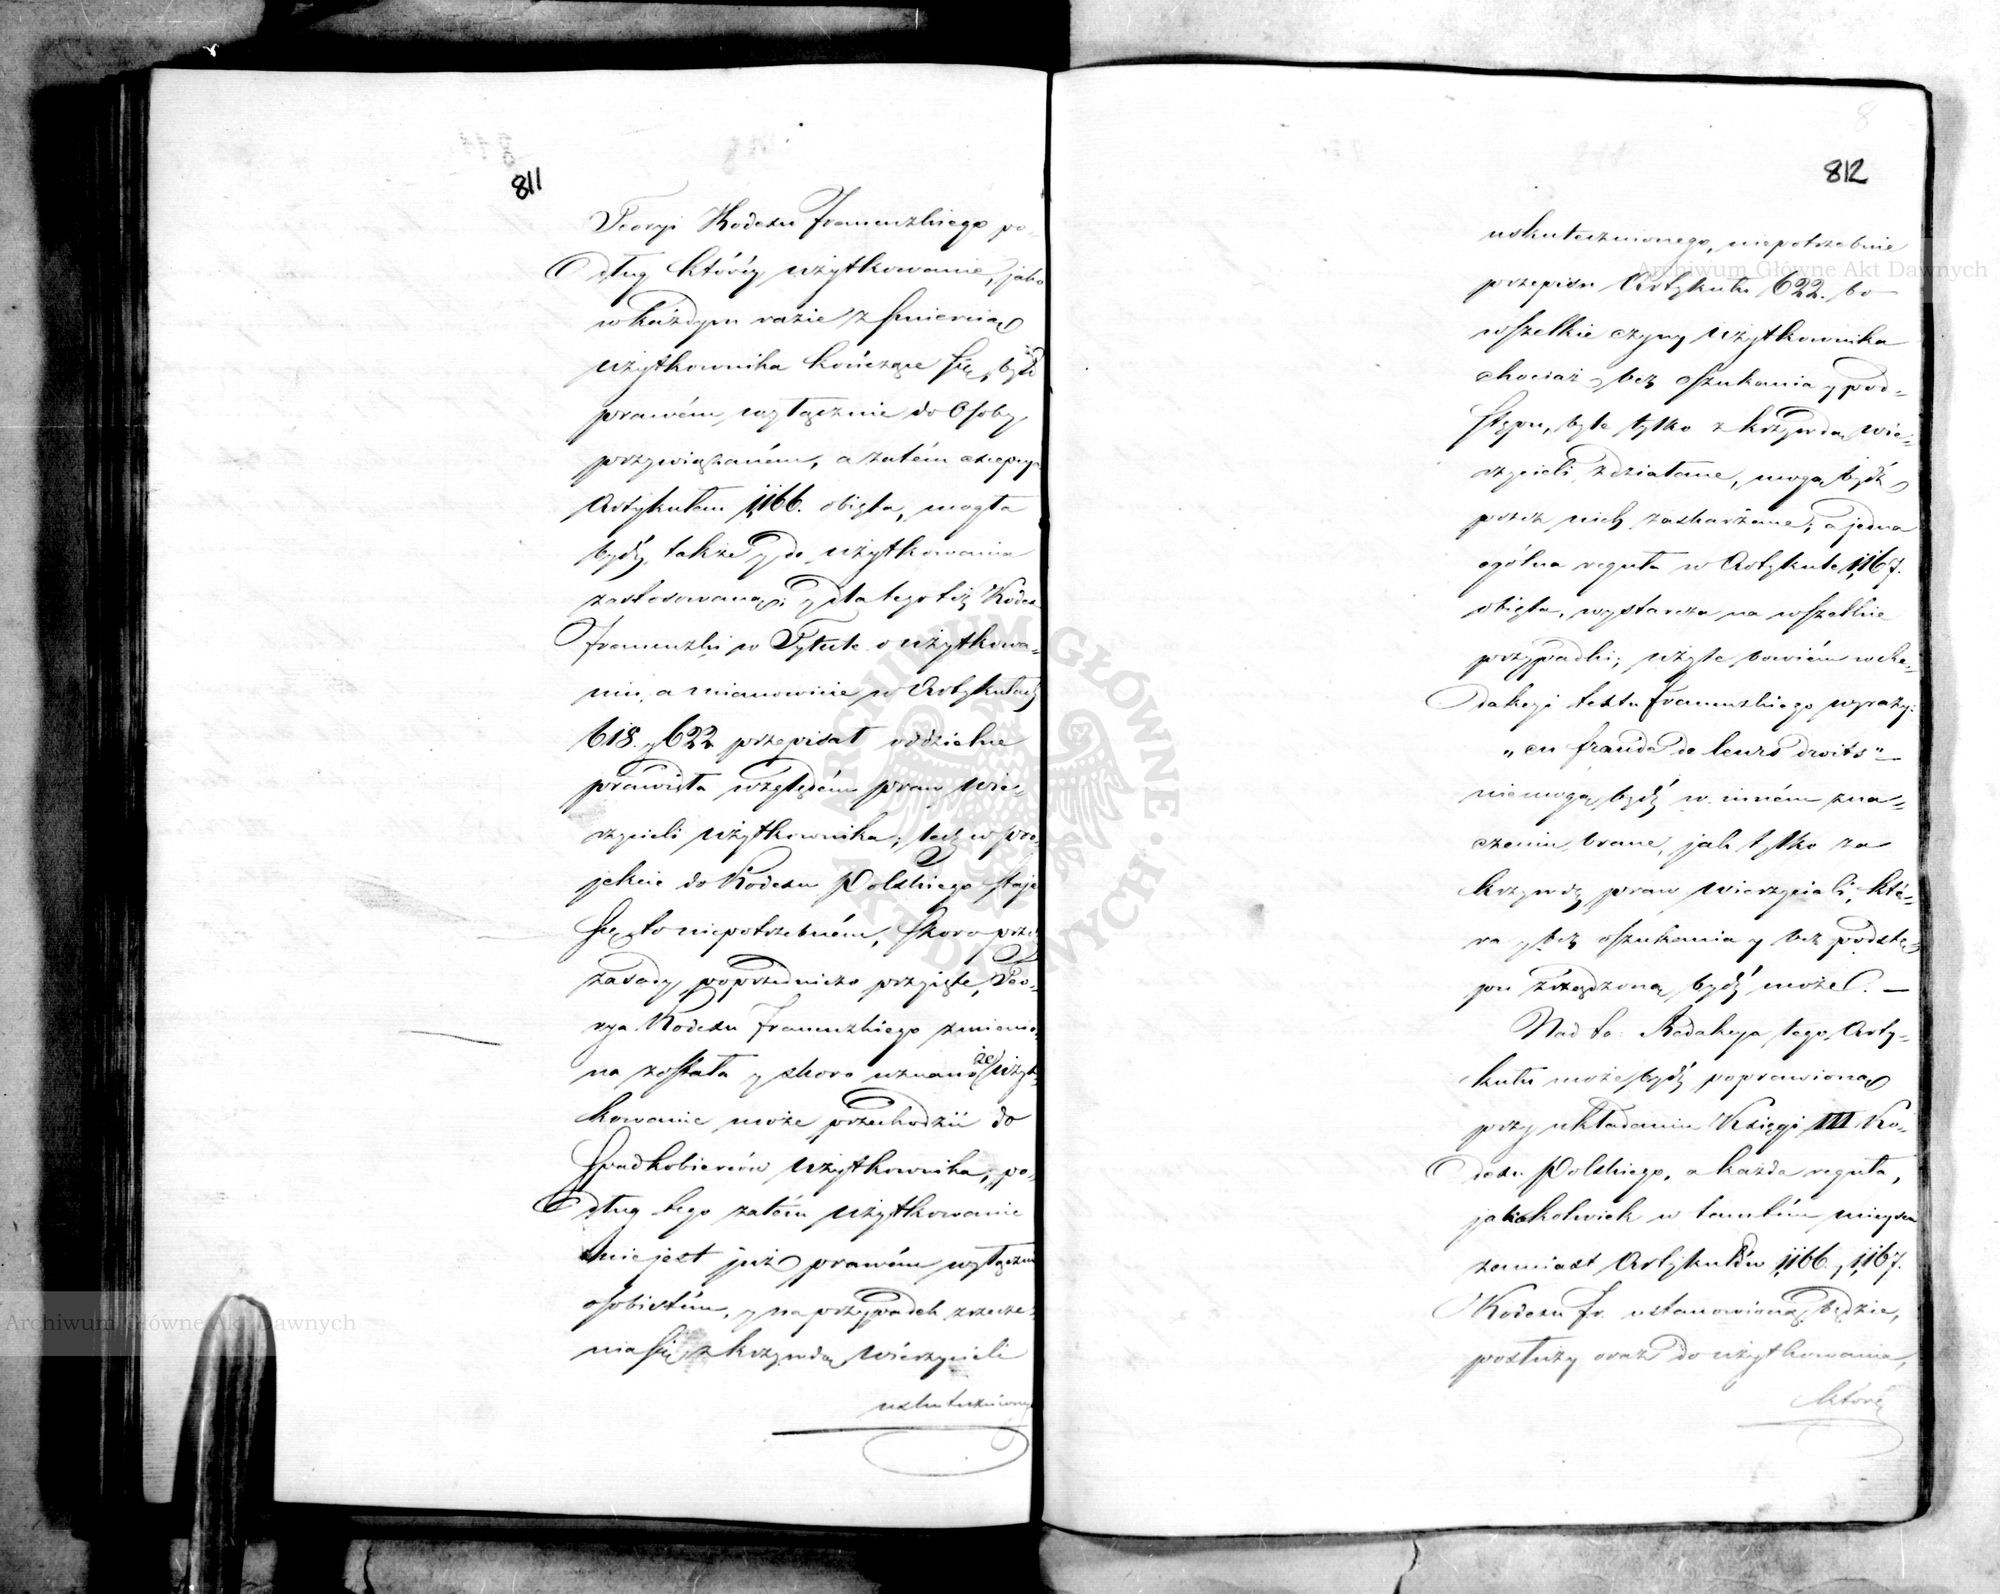 811
Teoryi Kodexu Francuzkiego po-
dług któréy użytkowanie, jako
w każdym razie z śmiercią
użytkownika kończące się, było
prawém wyłącznie do Osoby
przywiązaném, a zatém excepcya
Artykułem 1166. obięta, mogła
bydź także y do użytkowania
zastosowaną; y dla tego też Kodex
Francuzki w Tytule o użytkowa-
niu, a mianowicie w Artykułach
618. y 622 przepisał oddzielne
prawidła względem praw wie-
rzycieli użytkownika; lecz w pro-
jekcie do Kodexu Polskiego staje
się to niepotrzebném, skoro przez
zasady poprzedniczo przyięte, Teo-
rya Kodexu Francuzkiego zmienio-
na została y skoro uznano że użyt-
kowanie może przechodzić do
Spadkobierców użytkownika; po-
dług tego zatém użytkowanie
nie jest już prawém wyłącznie
osobistém, y na przypadek zrzecze-
nia się z krzywdą wierzycieli
uskutecznionego
812
uskutecznionego, niepotrzebnie
przepisu Artykułu 622. bo
wszelkie czyny użytkownika
chociaż y bez oszukania y pod-
stępu, byle tylko z krzywdą wie-
rzycieli zdziałane, mogą bydź
przez nich zaskarżane; a jedna
ogólna reguła w Artykule 1167.
obięta, wystarcza na wszelkie
przypadki; użyte bowiém w Re-
dakcyi textu francuzkiego wyrazy:
„en fraude de leurs droits"
niemogą bydź w inném zna-
czeniu brane, jak tylko za
krzywdę praw wierzycieli, któ-
ra y bez oszukania y bez podstę-
pu zrządzoną bydź może. —
Nad to: Redakcya tego Arty-
kułu może bydź poprawioną
przy układaniu Księgi III Ko-
dexu Polskiego, a każda reguła,
jakakolwiek w tamtém mieyscu
zamiast Artykułów 1166. y 1167.
Kodexu fr. ustanowioną będzie,
posłuży oraz do użytkowania,
które
Archiwum Główne Akt Dawnych
Archiwum Główne Akt Dawnych
ARCHIWUM GŁÓWNE AKT DAWNYCH